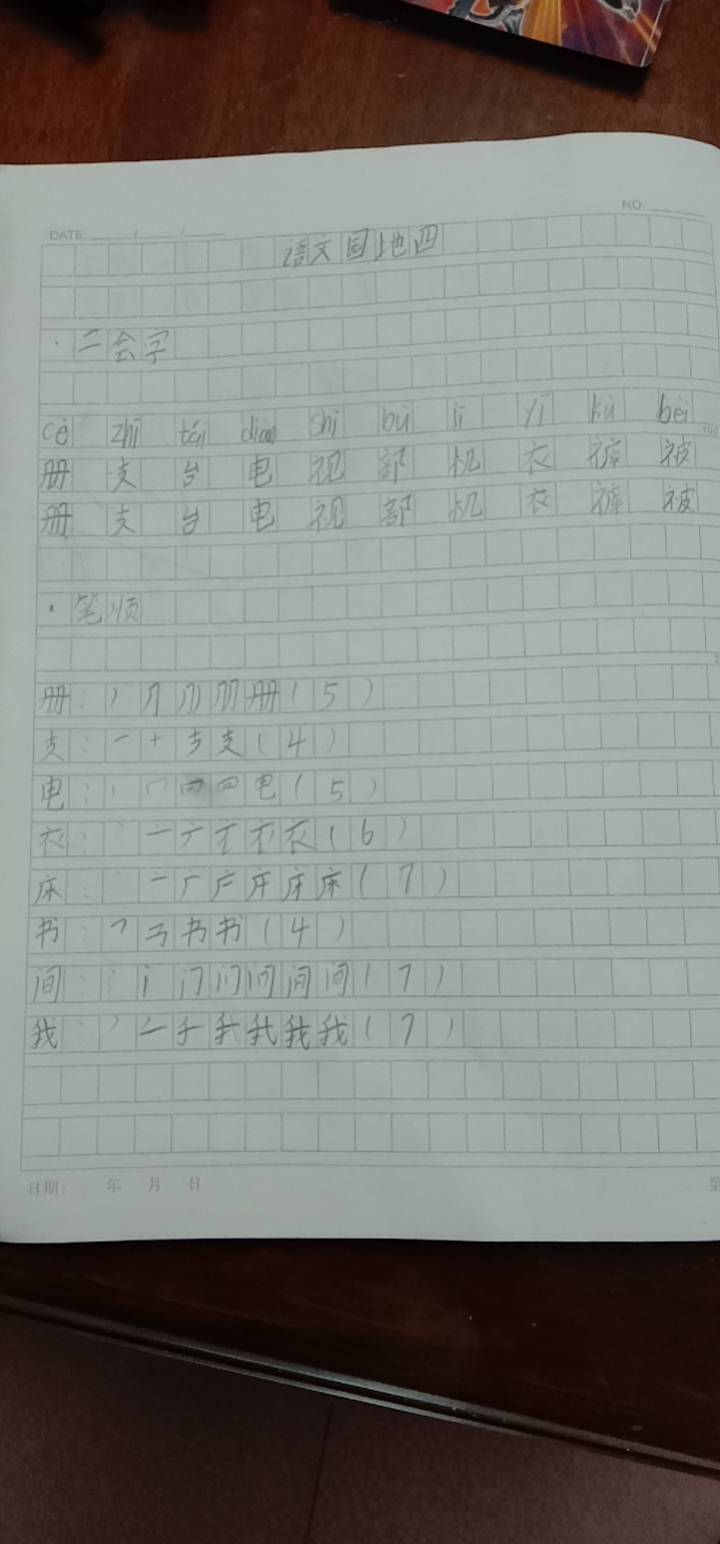 NO.
DATE / /
语文园地四
· 二会字
cè zhī tái diàn shì bù jī yī kù bèi
册 支 台 电 视 部 机 衣 裤 被
册 支 台 电 视 部 机 衣 裤 被
· 笔顺
册：丿 ⺆ 册（5）
支：一 十 支（4）
电：丨 电（5）
衣：丶 亠 衣（6）
床：丶 亠 广 床（7）
书：㇕ 书 书（4）
间：丶 门 问 间（7）
我：丿 我（7）
日期： 年 月 日